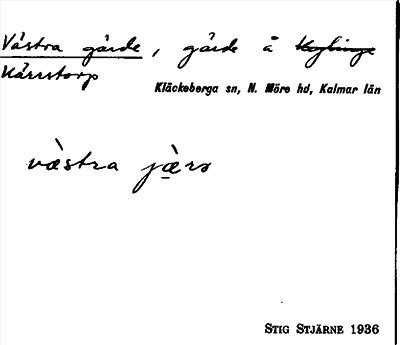 Västra gärde, gärde å
Kärrstorp
Kläckeberga sn, N. Möre hd, Kalmar län
västra jærə
STIG STJÄRNE 1936